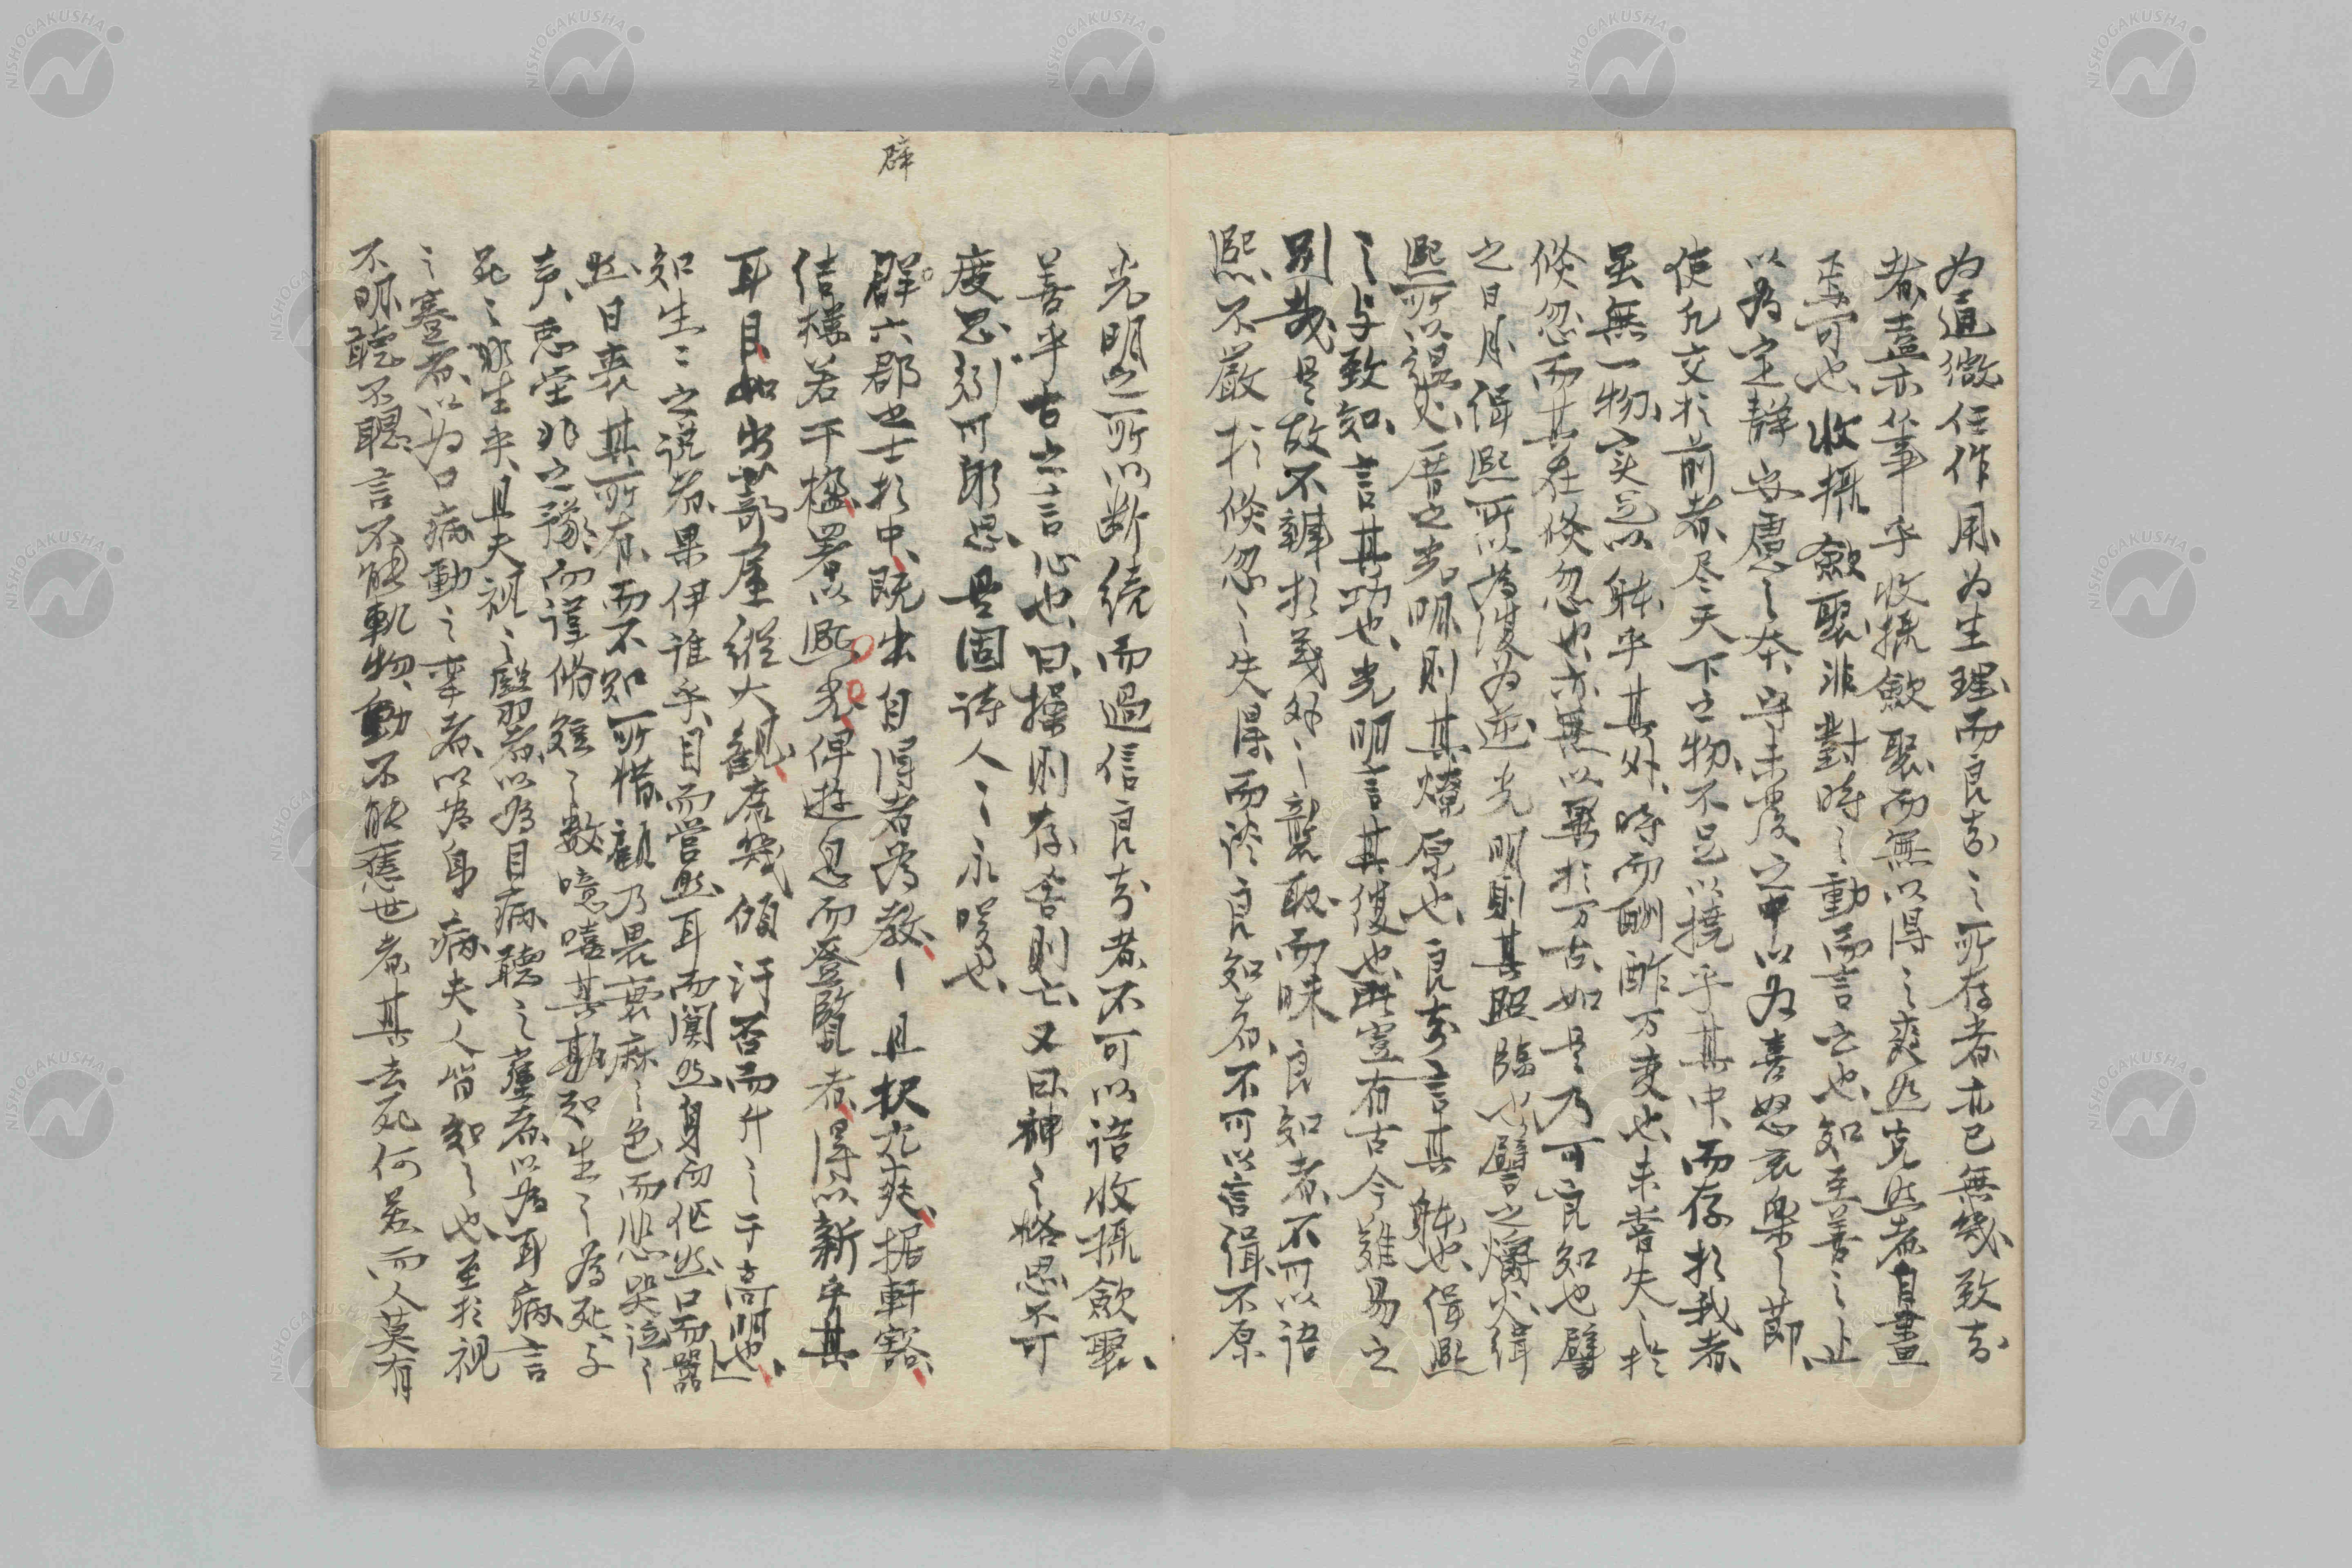 為通微任作用為生理而良知之所存者亦已無幾致知
者盍亦筆乎收攝斂聚而無以得之爽然克然者自畫
焉可也收攝斂聚非對時之動而言之也知至善之止
以為定靜安慮之本守未發之中以為喜怒哀樂之節
使凡交於前者尽天下之物不足以撓乎其中而存於我者
虽無一物实足以体乎其外時而酬酢万变也未嘗失之於
倏忽而其在倏忽也亦無以異於万古如是乃可言良知也譬
之日月緝熙所以為復為逆光明則其照臨也譬之爝火緝
熙所以温火厝之光明則其燎原也良知言其体也緝熙
之与致知言其功也光明言其復也此豈有古今難易之
別哉是故不辨於義外之襲取而昧良知者不可以語
熙不嚴於倏忽之失得而談良知者不可以言緝不原
光明之所以断続而過信良知者不可以語收攝斂聚
善乎古之言心也曰操則存舍則亡又曰神之格思不可
度思矧可射思是固诗人之永嘆也
辟六郡之士於中既出自得者為教之且択九爽据軒豁
結樓若干楹署以熙光俾遊息而登覽者得以新乎其
耳目如出蔀屋縱大観庶幾傾汙否而升之于高明也
知生之之说者果伊誰乎目而営然耳而闃然身而伛然口而嚣
然日丧其所有而不知所惜顧乃畏衰麻之色而悲哭泣之
声恶窀非之豫而谨修短之数噫嘻其孰知生之為死
死之非生乎且夫視之翳者以為目病聽之聾者以為耳病言
之蹇者以為口病動之牽者以為身病夫人皆知之也至於視
不明聽不聰言不能軌物動不能憲世者其去死何若而人莫有
辟